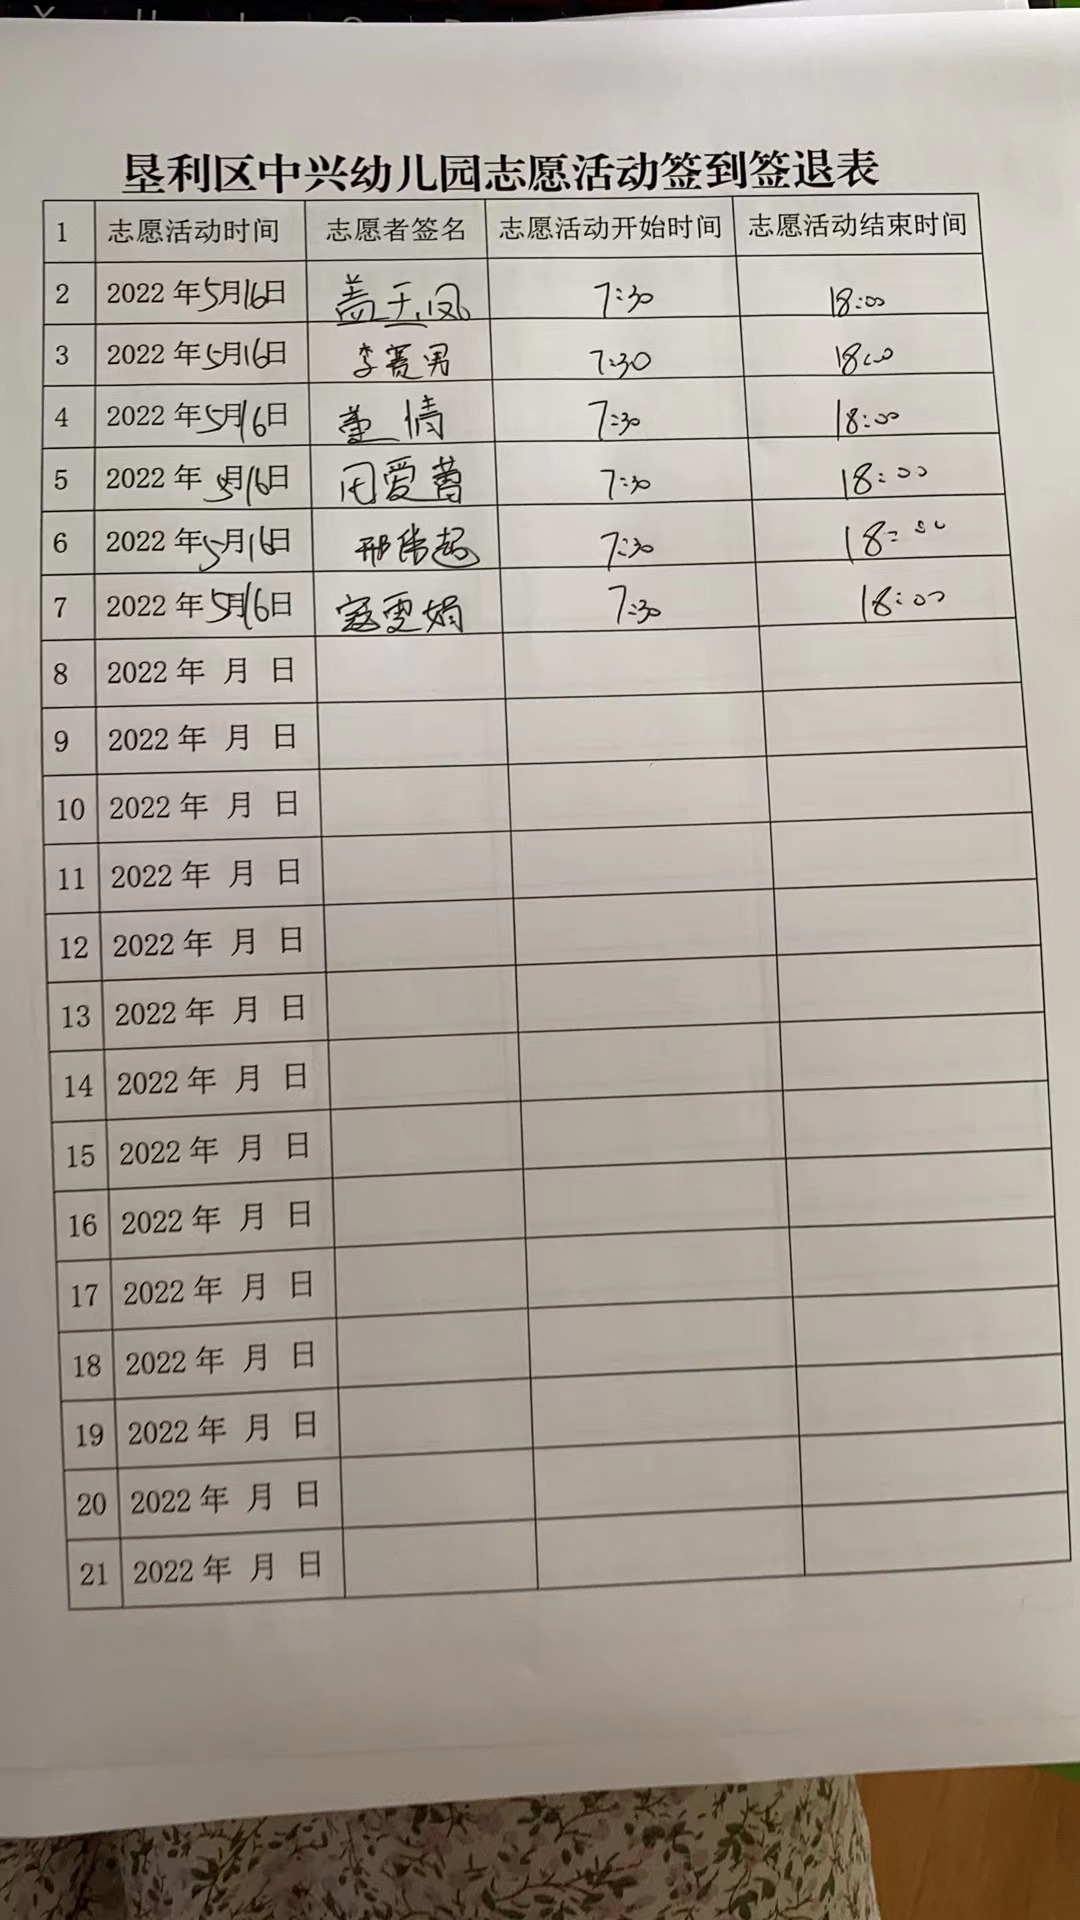 垦利区中兴幼儿园志愿活动签到签退表
1 志愿活动时间 志愿者签名 志愿活动开始时间 志愿活动结束时间
2 2022年5月16日 盖玉凤 7:30 18:00
3 2022年5月16日 李赛男 7:30 18:00
4 2022年5月16日 董倩 7:30 18:00
5 2022年5月16日 7:30 18:00
6 2022年5月16日 7:30 18:00
7 2022年5月16日 寇雯娟 7:30 18:00
8 2022年 月 日
9 2022年 月 日
10 2022年 月 日
11 2022年 月 日
12 2022年 月 日
13 2022年 月 日
14 2022年 月 日
15 2022年 月 日
16 2022年 月 日
17 2022年 月 日
18 2022年 月 日
19 2022年 月 日
20 2022年 月 日
21 2022年 月 日